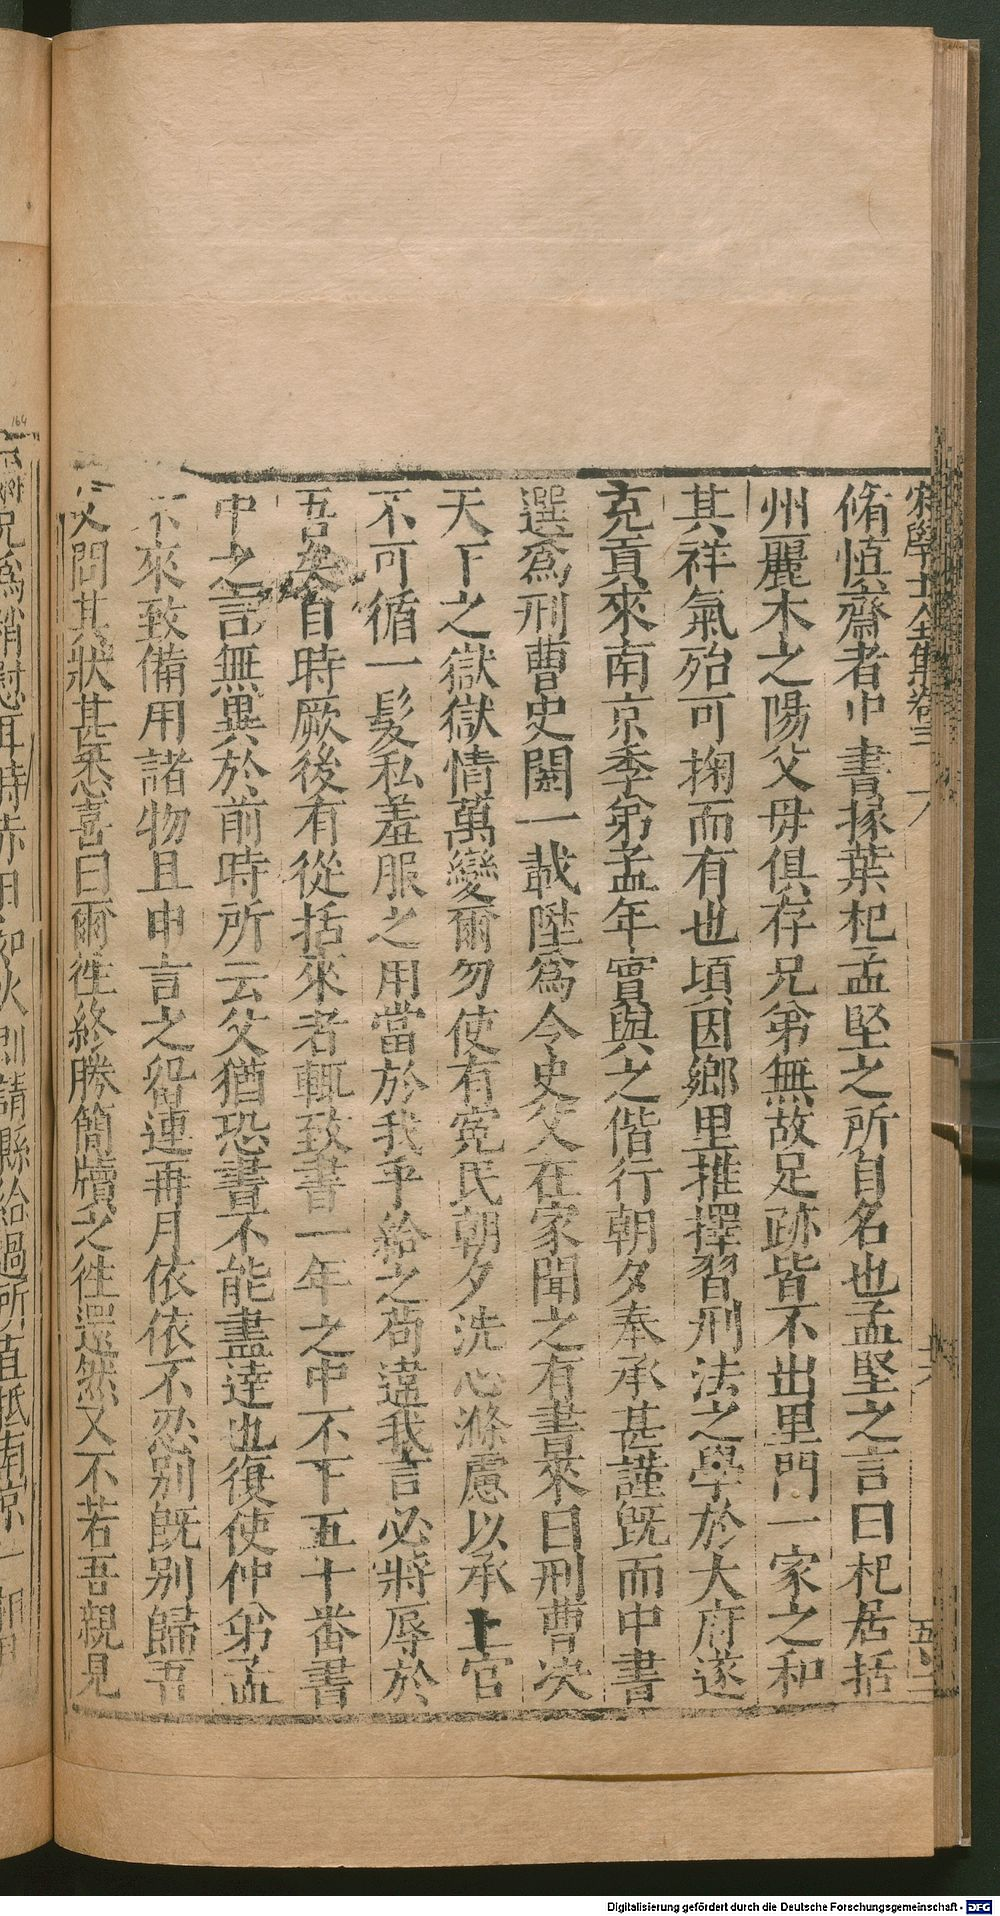 宋學士全集卷三
脩慎齋者中書掾葉杞孟堅之所自名也孟堅之言曰杞居括
州麗木之陽父母俱存兄弟無故足跡皆不出里門一家之和
其祥氣殆可掬而有也頃因鄉里推擇習刑法之學於大府遂
克貢來南京季弟孟年實與之偕行朝夕奉承甚謹既而中書
選爲刑曹史閱一載陞爲令史父在家聞之有書來曰刑曹决
天下之獄獄情萬變爾勿使有寃民朝夕洗心滌慮以承上官
不可循一髮私羞服之用當於我乎給之苟違我言必將辱於
吾矣自時厥後有從括來者輒致書一年之中不下五十番書
中之言無異於前時所云父猶恐書不能盡達也復使仲弟孟
不來致備用諸物且申言之留連再月依依不忍別旣別歸吾
父問其狀甚悉喜曰爾徃終勝簡牘之徃還然又不若吾親見
兄爲稍慰耳時赤日如火則請縣給過所直抵南京
164
Digitalisierung gefördert durch die Deutsche Forschungsgemeinschaft - DFG